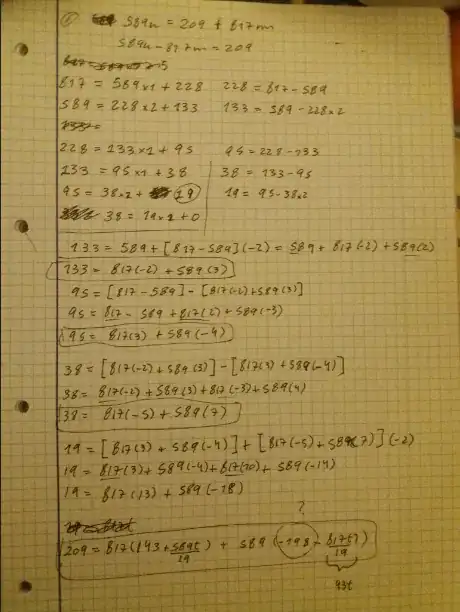 589n = 209 + 817m
589n - 817m = 209
817 = 589x1 + 228 228 = 817 - 589
589 = 228x2 + 133 133 = 589 - 228x2
228 = 133x1 + 95 95 = 228 - 133
133 = 95x1 + 38 38 = 133 - 95
95 = 38x2 + 19 19 = 95 - 38x2
38 = 19x2 + 0
133 = 589 + [817 - 589](-2) = 589 + 817(-2) + 589(2)
133 = 817(-2) + 589(3)
95 = [817 - 589] - [817(-2) + 589(3)]
95 = 817 - 589 + 817(2) + 589(-3)
95 = 817(3) + 589(-4)
38 = [817(-2) + 589(3)] - [817(3) + 589(-4)]
38 = 817(-2) + 589(3) + 817(-3) + 589(4)
38 = 817(-5) + 589(7)
19 = [817(3) + 589(-4)] + [817(-5) + 589(7)](-2)
19 = 817(3) + 589(-4) + 817(10) + 589(-14)
19 = 817(13) + 589(-18)
?
209 = 817(143 + 589t/19) + 589(-198 - 817t/19)
43t